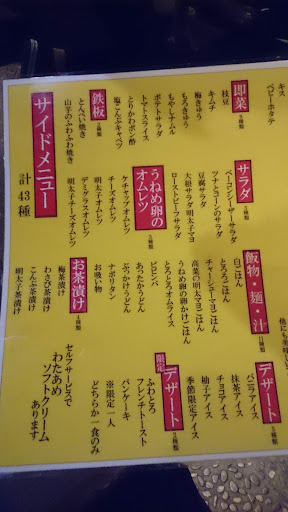 キス
ベビーホタテ
他にも
サイドメニュー
計43種
即菜
9種類
枝豆
キムチ
梅きゅう
もろきゅう
もやしナムル
ポテトサラダ
トマトスライス
とりかわポン酢
塩こんぶキャベツ
鉄板
2種類
とんぺい焼き
山芋のふわふわ焼き
サラダ
5種類
ベーコンシーザーサラダ
ツナとコーンのサラダ
豆腐サラダ
大根サラダ明太子マヨ
ローストビーフサラダ
うねめ卵の
オムレツ
5種類
ケチャップオムレツ
チーズオムレツ
明太子オムレツ
デミグラスオムレツ
明太子チーズオムレツ
飯物・麺・汁
11種類
白ごはん
とろろごはん
チャーシューマヨごはん
高菜の明太マヨごはん
うねめ卵の卵かけごはん
とろとろオムライス
ビビンバ
あったかうどん
ぶっかけうどん
ナポリタン
お吸い物
お茶漬け
4種類
梅茶漬け
わさび茶漬け
こんぶ茶漬け
明太子茶漬け
デザート
5種類
バニラアイス
抹茶アイス
チョコアイス
柚子アイス
季節限定アイス
限定
デザート
2種類
ふわとろ
フレンチトースト
パンケーキ
※限定一人
どちらか一食のみ
セルフサービスで
わたあめ
ソフトクリーム
あります